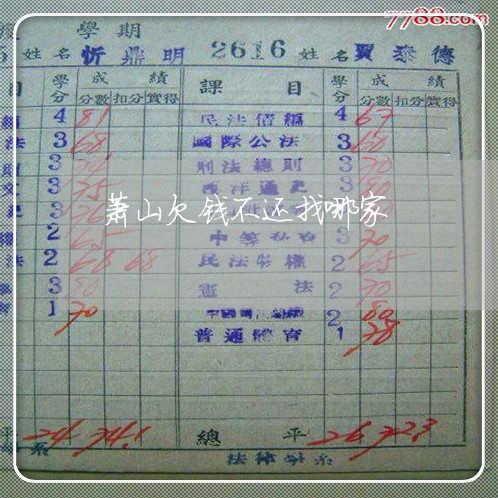 7788.com
學期
姓名 忻鼎明 2616 姓名 賈泰德
目 學分 成績 課目 學分 成績
分數 扣分 實得 分數 扣分 實得
4 81 民法債編 4 67
法 3 68 國際公法 3 60
3 刑法總則 3 70
3 75 西洋通史 3
3
萧山欠钱不还找哪家
2 65 3 70
法 2 68 68 民法物權 2 65
3 80 憲法 2 70
1 70 2 80
普通體育 1 78
平 24 74.1 總平 26 72.3
系 法律學系